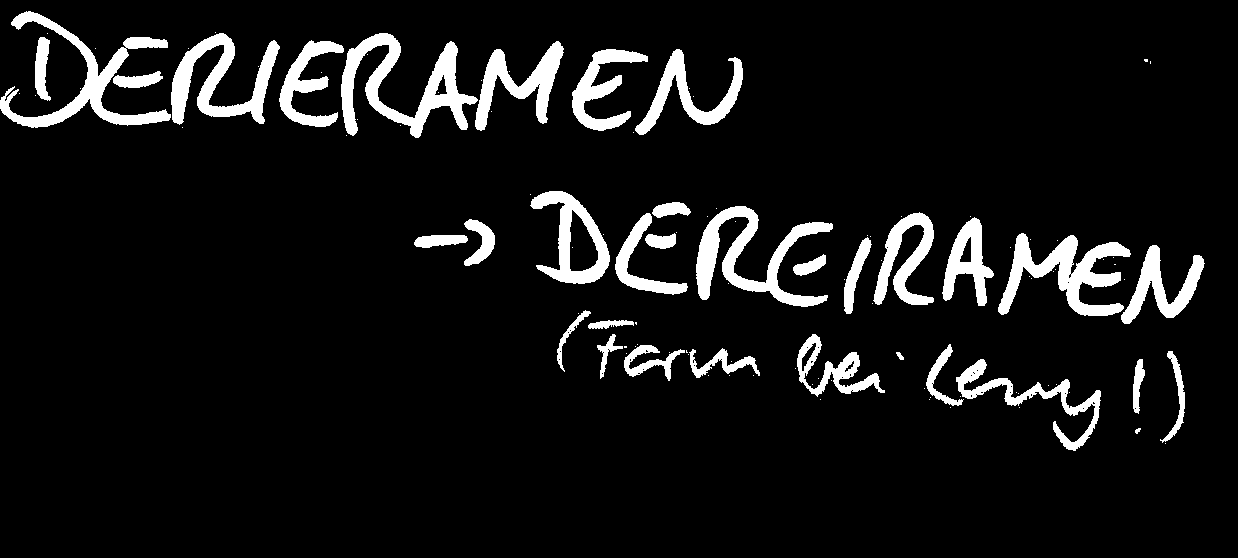 DERIERAMEN
→ DEREIRAMEN
(Farm bei Leny!)